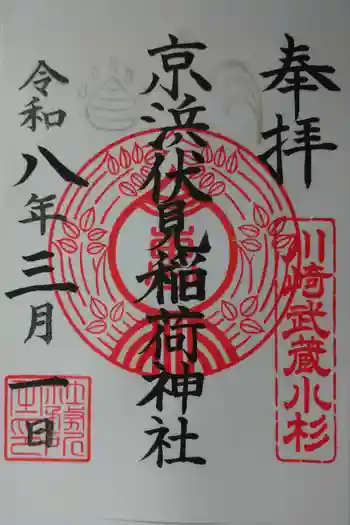 奉拝
川崎武蔵小杉
京浜伏見稲荷神社
令和八年三月一日